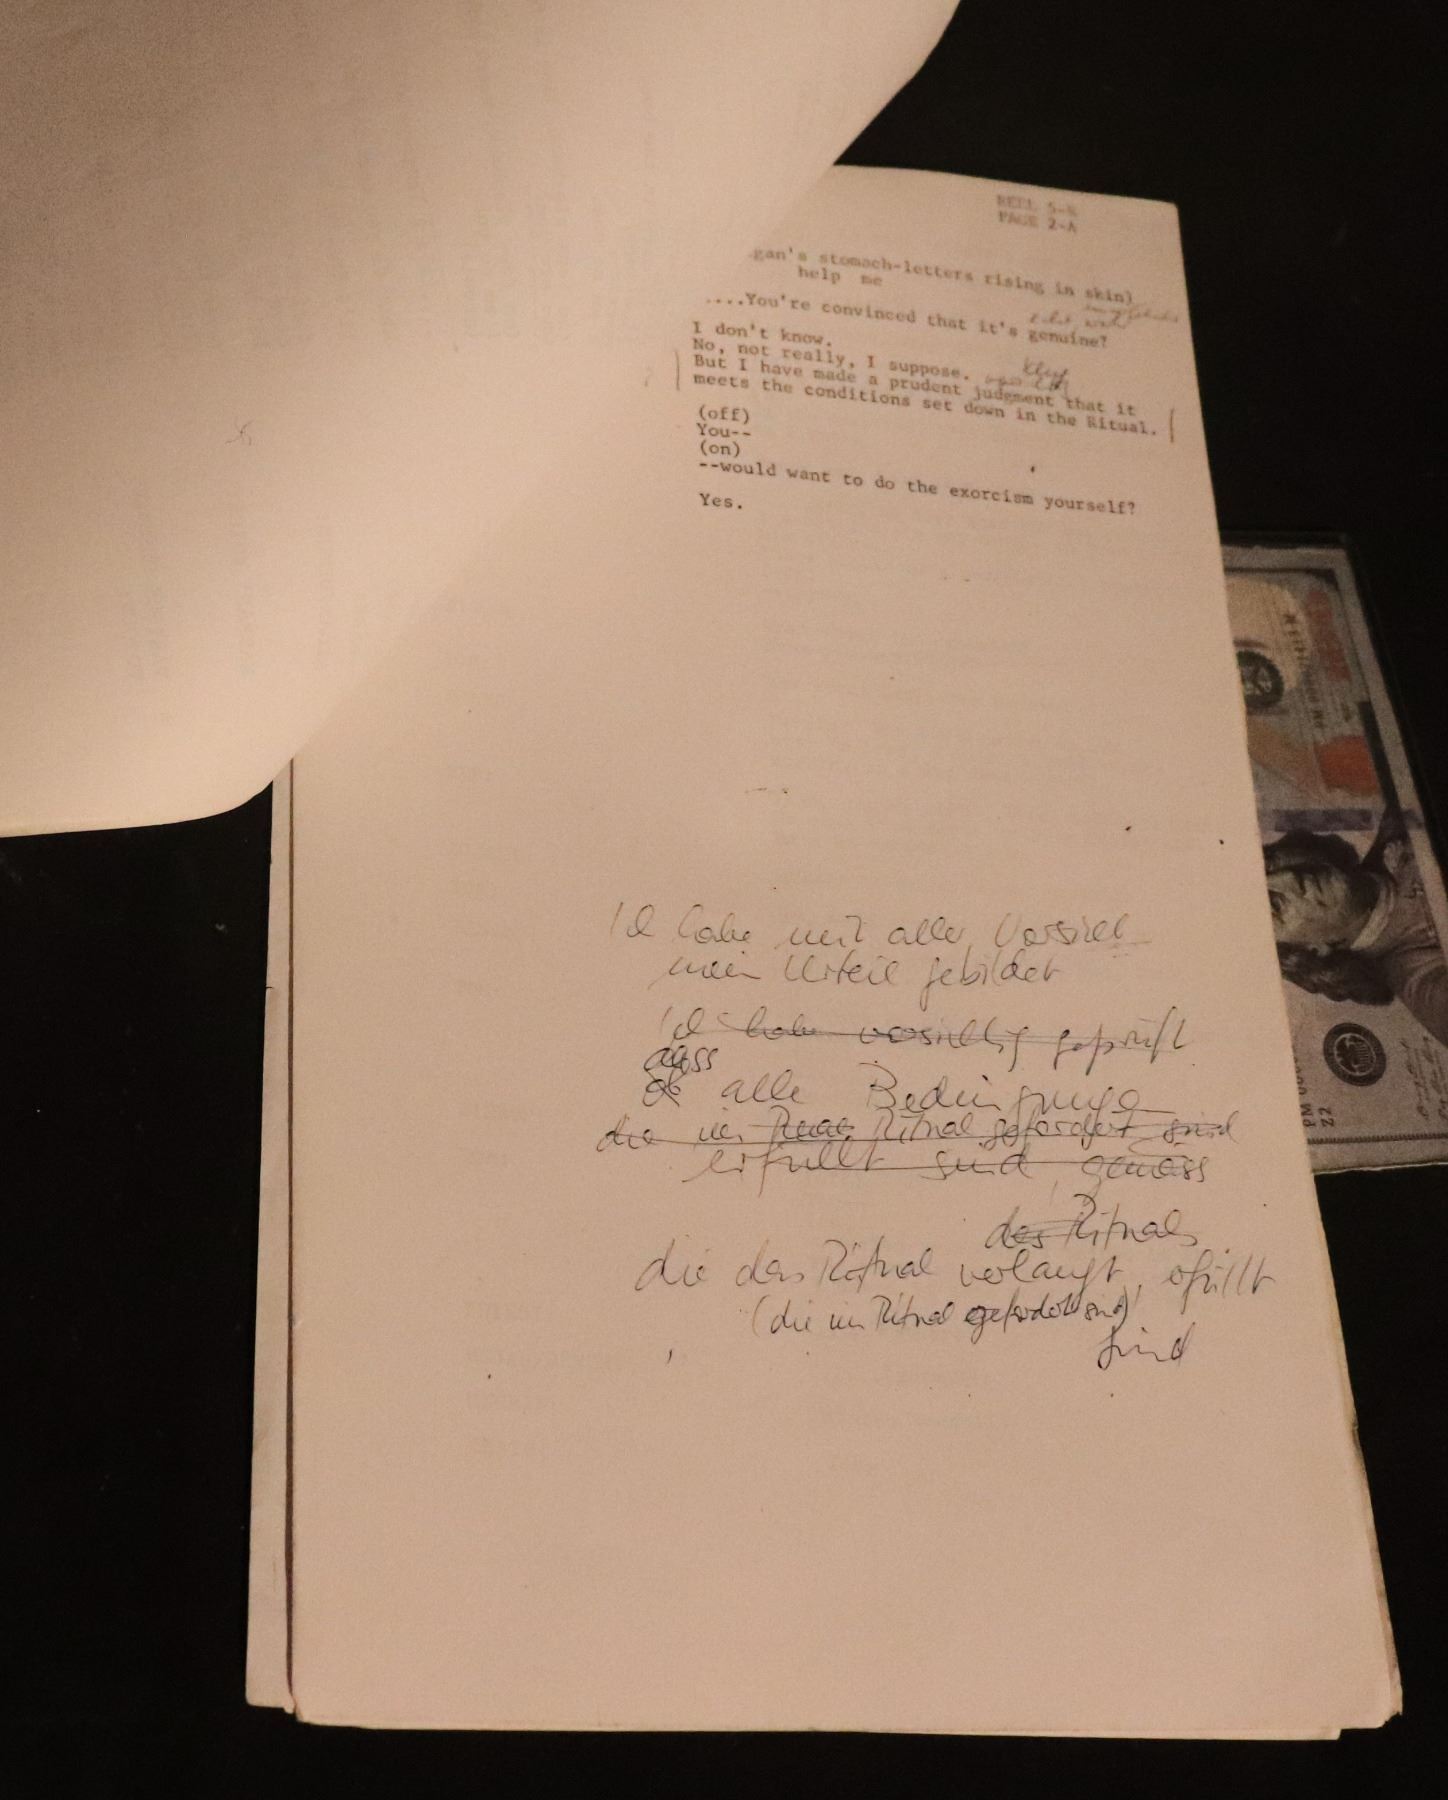 REEL 5-
PAGE 2-A
gan's stomach-letters rising in skin)
help me
....You're convinced that it's genuine?
I don't know.
No, not really, I suppose.
But I have made a prudent judgment that it
meets the conditions set down in the Ritual.
(off)
You--
(on)
--would want to do the exorcism yourself?
Yes.
Ich habe mit aller Vorsicht
mein Urteil gebildet
Ich habe vorsichtig geprüft
dass
ob alle Bedingungen
die im Ritual gefordert sind
erfüllt sind gemäss
des Rituals
die das Ritual verlangt, erfüllt
(die im Ritual gefordert sind)
sind